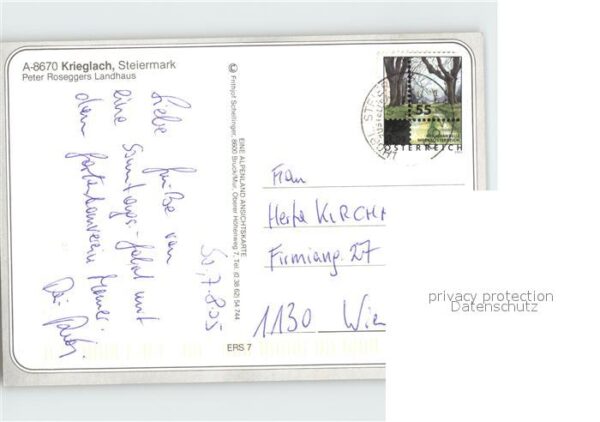 A-8670 Krieglach, Steiermark
Peter Roseggers Landhaus
Liebe Grüße von
eine Sonntags-fahrt mit
dem Gartenbauverein
So, 7.8.05
EINE ALPENLAND ANSICHTSKARTE
© Frithjof Schellinger, 8600 Bruck/Mur, Oberer Höhenweg 7, Tel. (0 38 62) 54 744
ERS 7
55
ÖSTERREICH
Frau
Herta KIRCH
Firmiang. 27
1130 Wien
privacy protection
Datenschutz